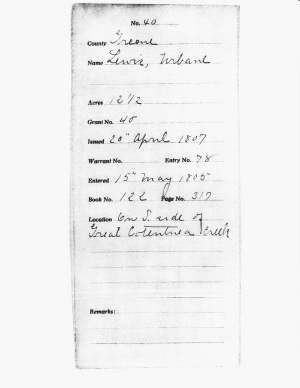 No. 40
County Greene
Name Lewis, Urbane
Acres 12 1/2
Grant No. 40
Issued 20" April 1807
Warrant No. Entry No. 78
Entered 15" May 1805
Book No. 122 Page No. 317
Location On S. side of
Great Cotentnea Creek
Remarks: